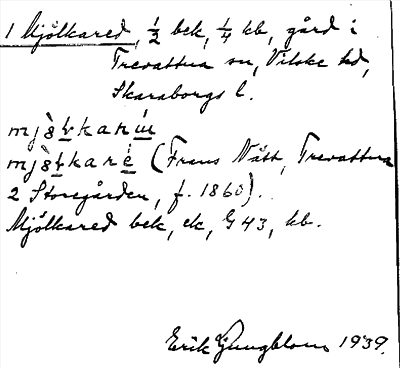 1 Mjölkared, ½ bek, ¼ kb, gård i
Trevattna sn, Vilske hd,
Skaraborgs l.
(Frans Nätt, Trevattna
2 Storegården, f. 1860).
Mjölkared bek, ek, G43, kb.
Erik Ljungblom 1939.